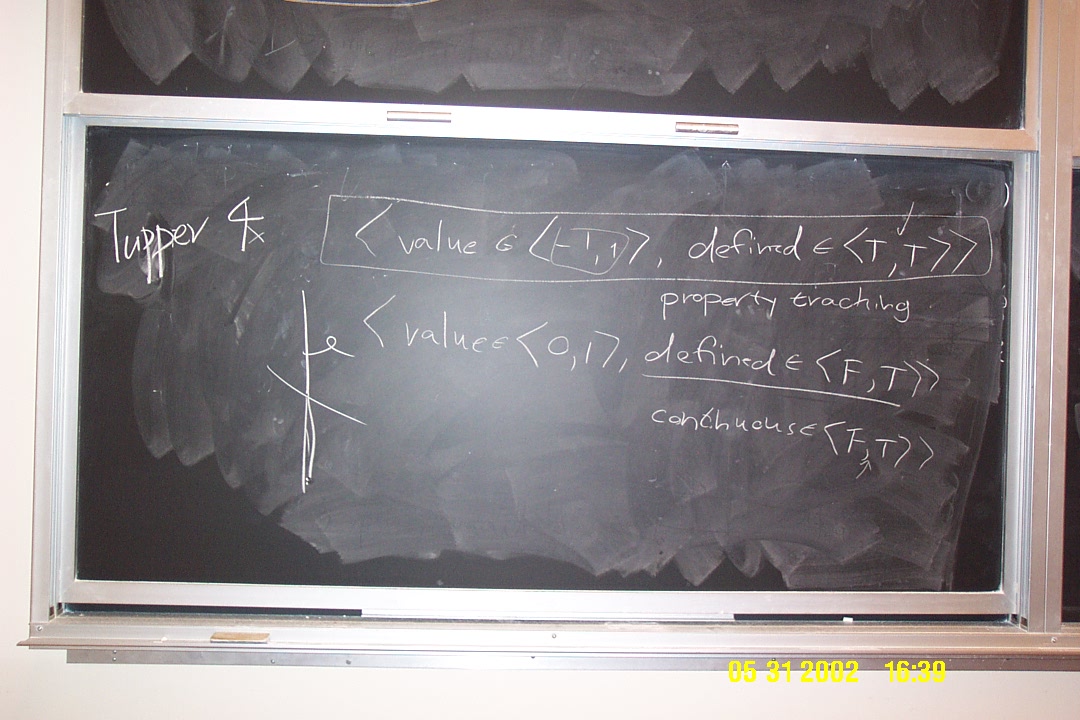 Tupper 4x
< value ∈ <-1,1>, defined ∈ <T,T>>
property tracking
< value ∈ <0,1>, defined ∈ <F,T>>
continuous ∈ <F,T>>
05 31 2002 16:39